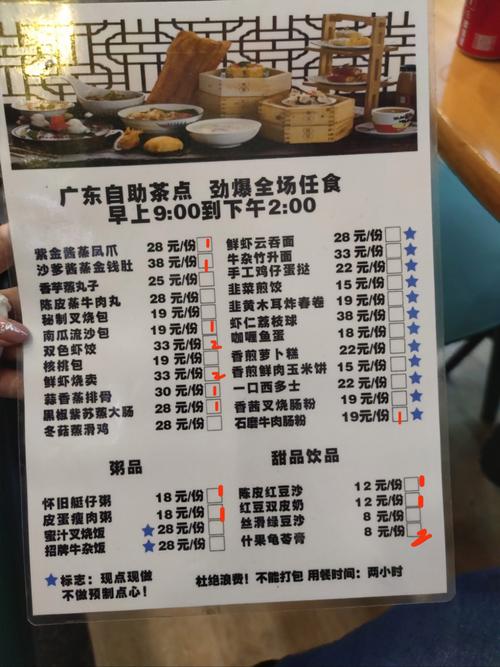 广东自助茶点 劲爆全场任食
早上9:00到下午2:00
紫金酱蒸凤爪 28 元/份 1
沙爹酱蒸金钱肚 38 元/份 1
香芋蒸丸子 25 元/份
陈皮蒸牛肉丸 28 元/份
秘制叉烧包 19 元/份
南瓜流沙包 19 元/份 1
双色虾饺 33 元/份 2
核桃包 19 元/份
鲜虾烧卖 33 元/份 2
蒜香蒸排骨 30 元/份 1
黑椒紫苏蒸大肠 28 元/份 1
冬菇蒸滑鸡 28 元/份
鲜虾云吞面 28 元/份
牛杂竹升面 33 元/份
手工鸡仔蛋挞 22 元/份
韭菜煎饺 15 元/份
韭黄木耳炸春卷 19 元/份
虾仁荔枝球 38 元/份
咖喱鱼蛋 18 元/份
香煎萝卜糕 22元/份
香煎鲜肉玉米饼 15 元/份
一口西多士 22 元/份
香茜叉烧肠粉 19 元/份
石磨牛肉肠粉 19元/份 1
粥品
怀旧艇仔粥 18 元/份 1
皮蛋瘦肉粥 18 元/份 1
蜜汁叉烧饭 ★ 28 元/份
招牌牛杂饭 ★ 28 元/份
甜品饮品
陈皮红豆沙 12 元/份 1
红豆双皮奶 12 元/份 1
丝滑绿豆沙 8 元/份
什果龟苓膏 8 元/份 2
★标志：现点现做
不做预制点心！
杜绝浪费！不能打包 用餐时间：两小时